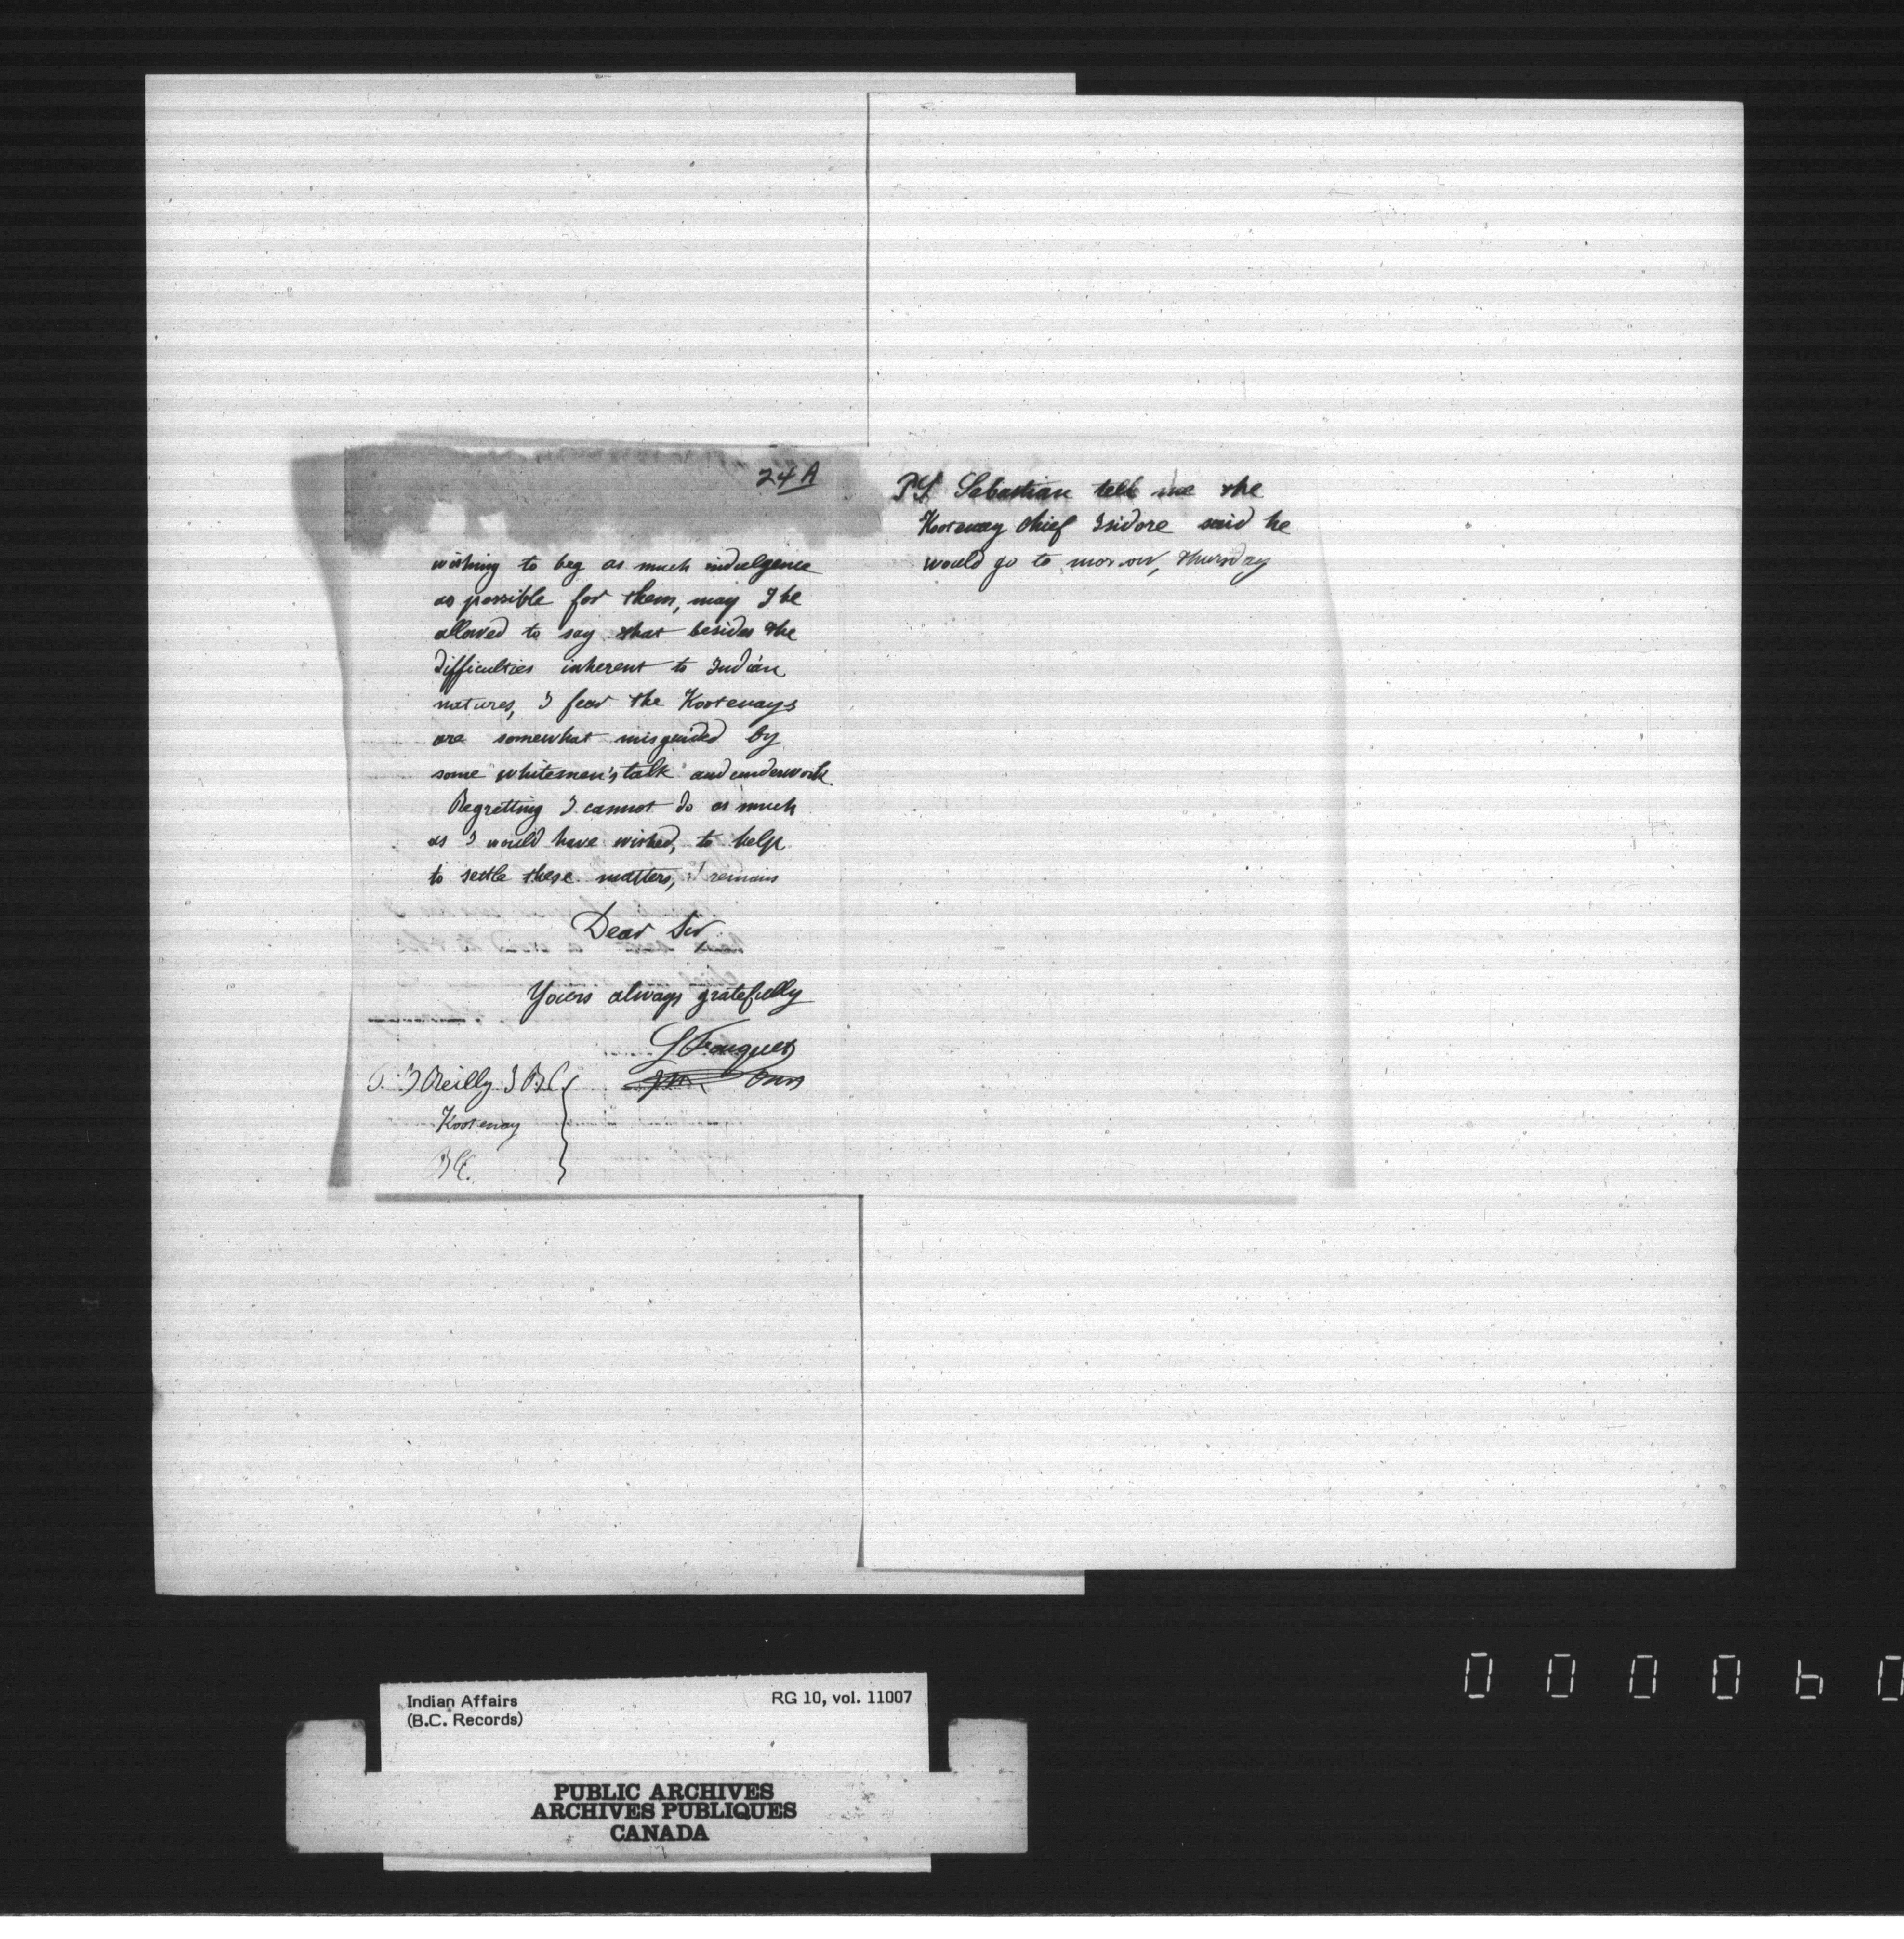 24 A
wishing to beg as much indulgence
as possible for them, may I be
allowed to say that besides the
difficulties inherent to Indian
natures, I fear the Kootenays
are somewhat misguided by
some whitemen's talk and underwork.
Regretting I cannot do as much
as I would have wished, to help
to settle these matters, I remain
Dear Sir,
Yours always gratefully
L Fouquet
OMI
O'Reilly
Kootenay
BC.
PS Sebastian tell me the
Kootenay chief Isidore said he
would go to morow, thursday
Indian Affairs
(B.C. Records)
RG 10, vol. 11007
PUBLIC ARCHIVES
ARCHIVES PUBLIQUES
CANADA